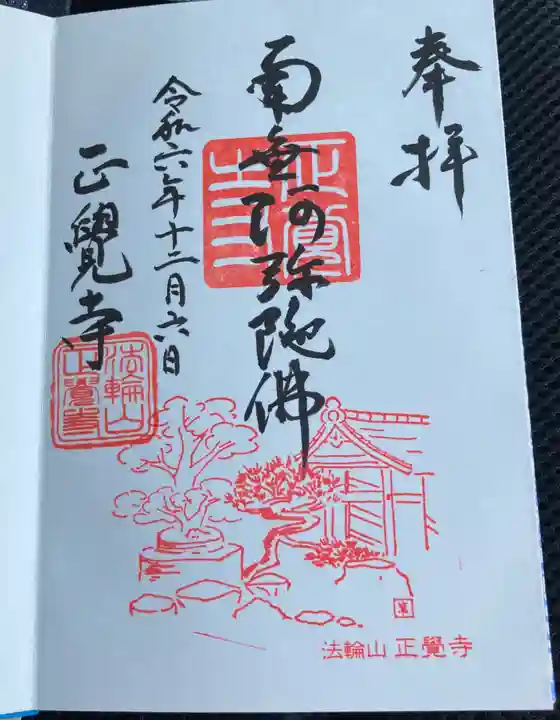 奉拝
南無阿弥陀佛
令和六年十二月六日
正覺寺
法輪山
正覺寺
法輪山 正覺寺